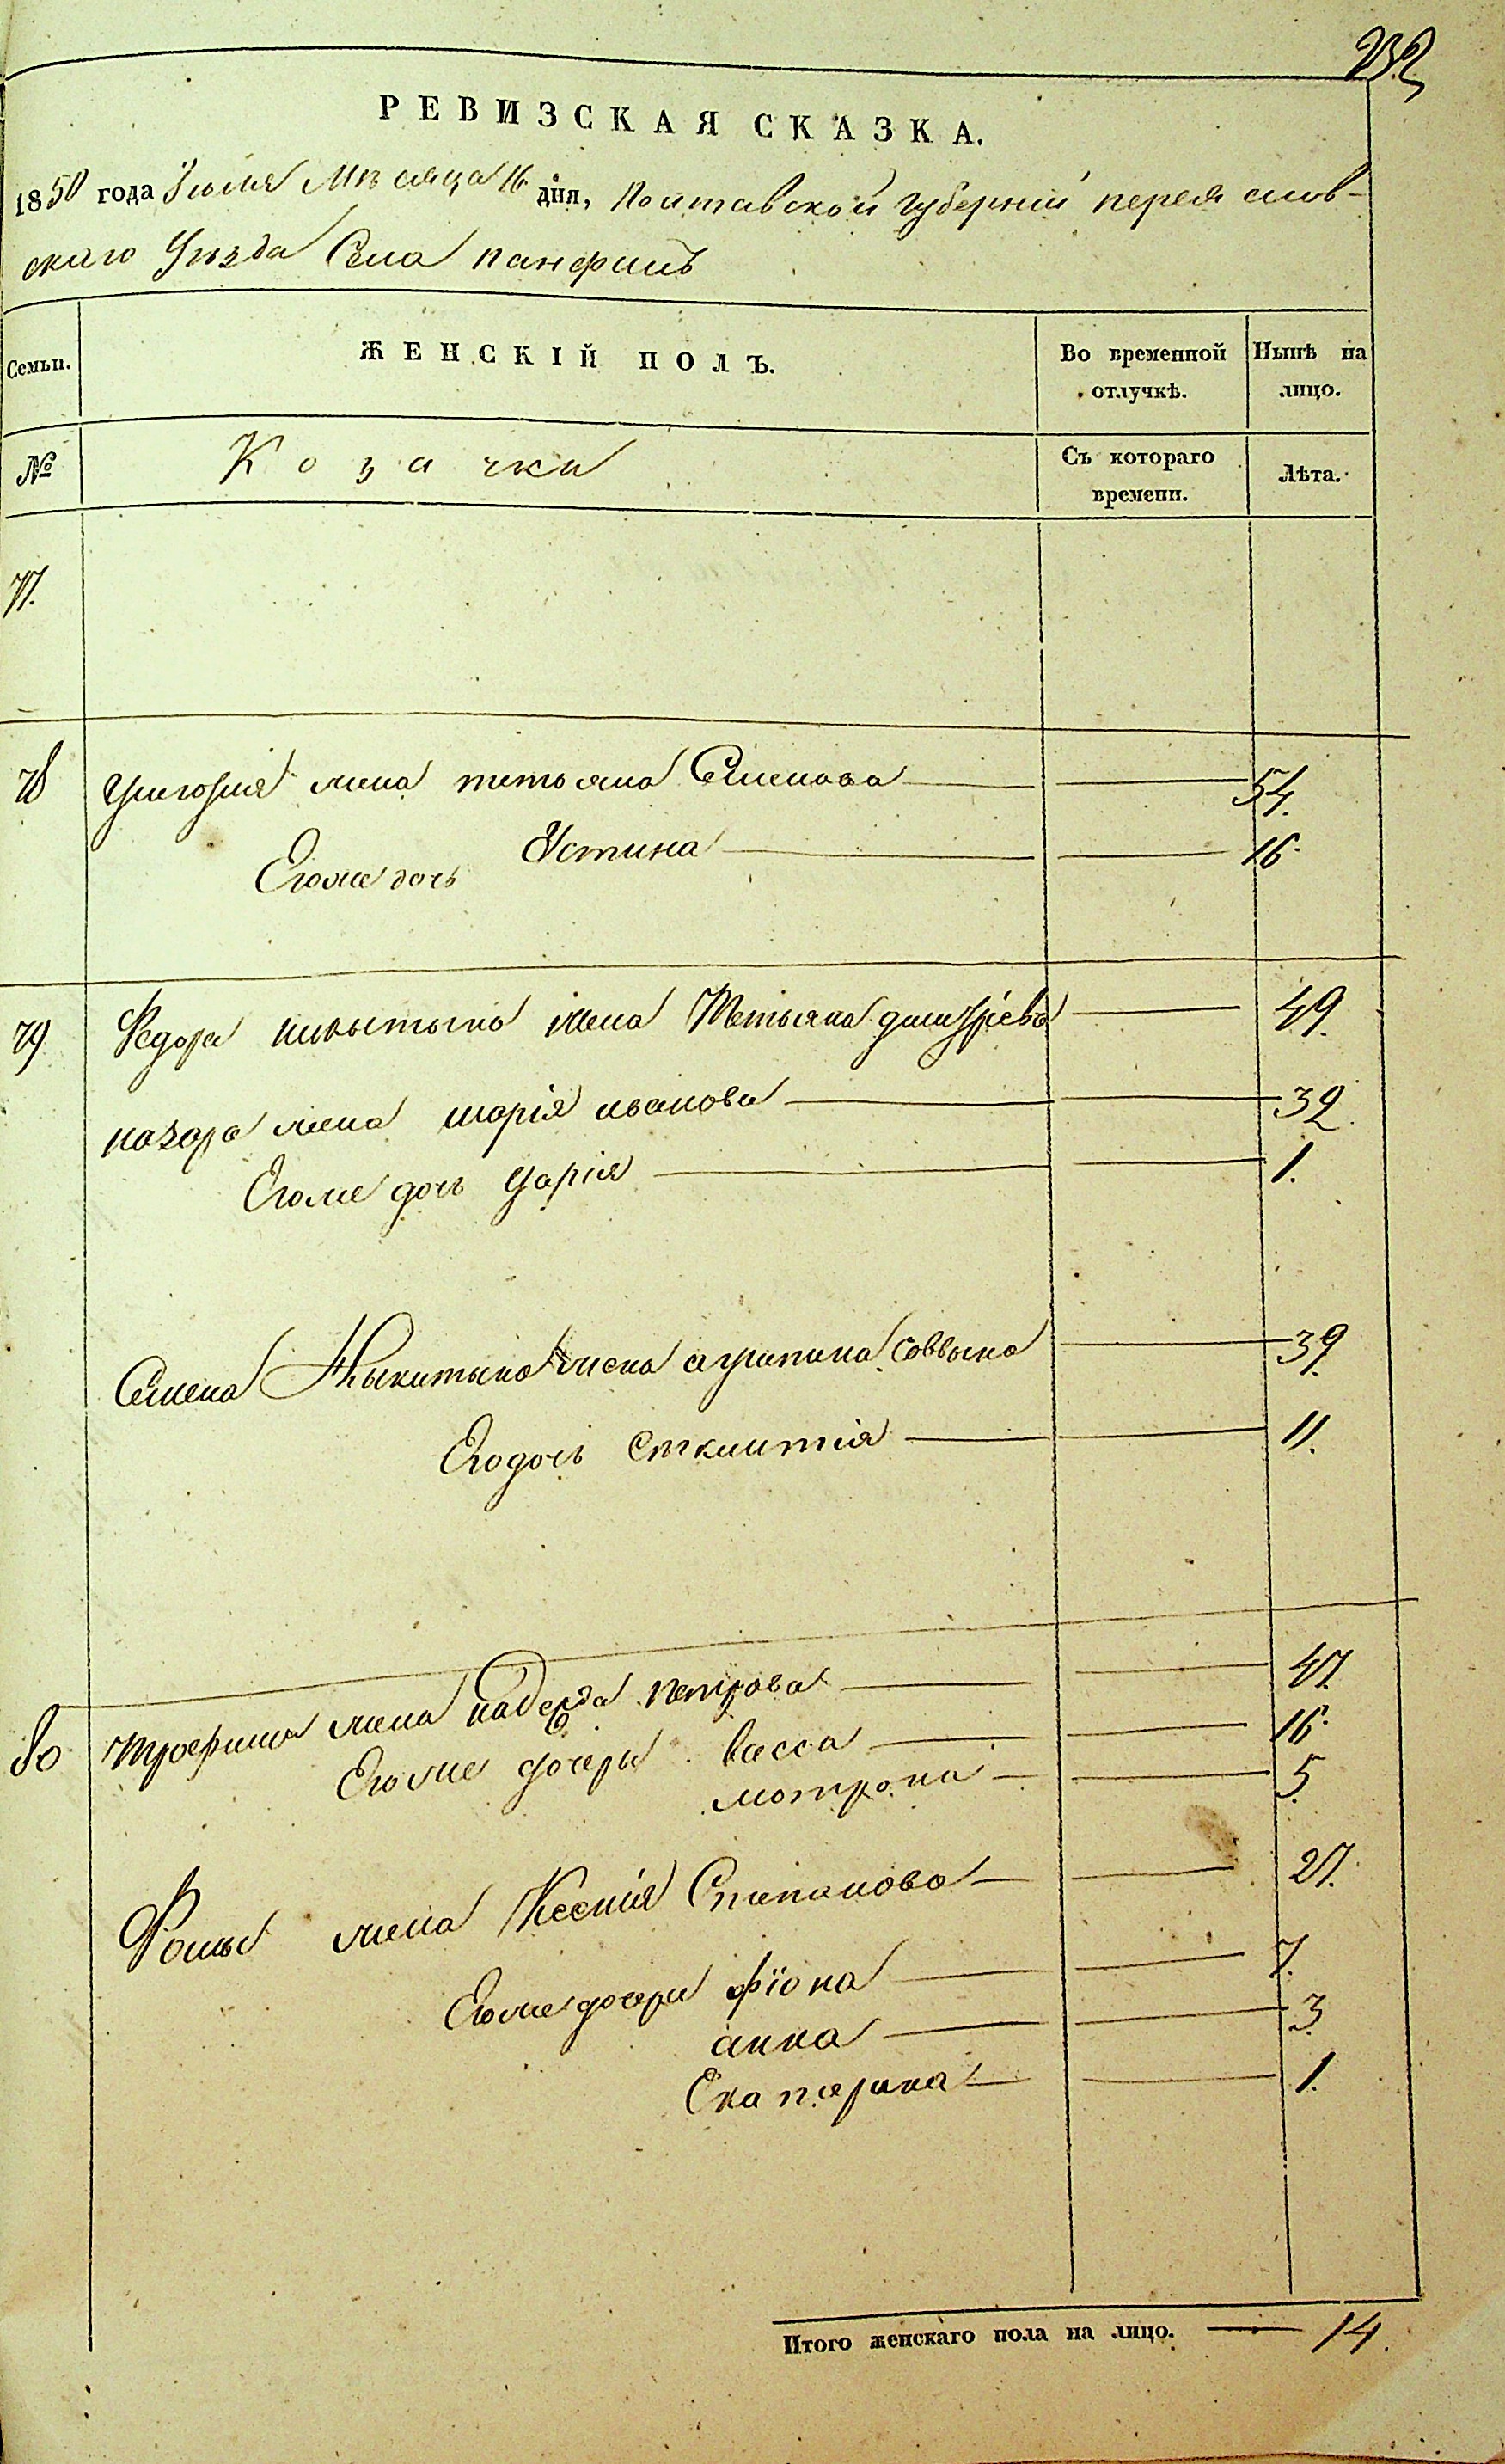 232
РЕВИЗСКАЯ СКАЗКА.
1850 года Июля Мѣсяца 16 дня, Полтавской губерніи переяслов-
скаго Уѣзда Села панфилъ
Семьи. ЖЕНСКІЙ ПОЛЪ. Во временной отлучкѣ. Нынѣ на лицо.
№ Козачки Съ котораго времени. Лѣта.
77.
78 григорія жена тетьяна Семенова 54.
Егоже дочь Устина 16
79 Федора никытына жена Тетьяна дмитріева 49.
назара жена марія иванова 32.
Егоже дочь дарія 1.
Семена Ныкитына жена агрипина Саввына 39.
Его дочь 11.
80 трофима жена надежда петрова 47.
Егоже дочери васса 16
мотрона 5.
Фомы жена Ксенія Степанова 27.
Егоже дочери фіона 7.
анна 3.
Екатерина 1.
Итого женскаго пола на лицо. 14.